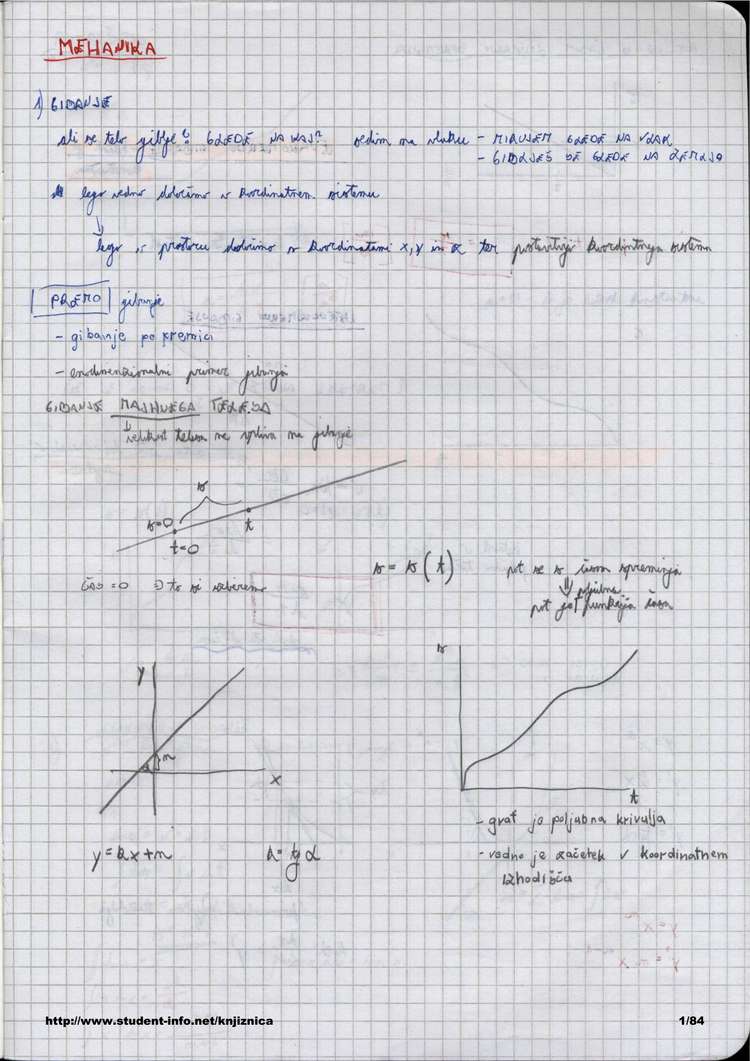 MEHANIKA
1) GIBANJE
ali se telo giblje? GLEDE NA KAJ? sedim na vlaku - MIRUJEM GLEDE NA VLAK
- GIBLJEŠ SE GLEDE NA ZEMLJO
lego vedno določimo v koordinatnem sistemu
lego v prostoru določimo s koordinatami x, y in z ter koordintnega sistema
PREMO gibanje
- gibanje po premici
- enodimenzionalni primer gibanja
GIBANJE MAJHNEGA TELESA
velikost telesa ne vpliva na gibanje
s
s=0
t
t=0
čas = 0 to si izberemo
s = s(t)
pot se s časom spreminja
poljubna
pot je funkcija časa
y
n
x
y = kx + n
k = tg α
s
t
- graf je poljubna krivulja
- vedno je začetek v koordinatnem
izhodišču
http://www.student-info.net/knjiznica
1/84